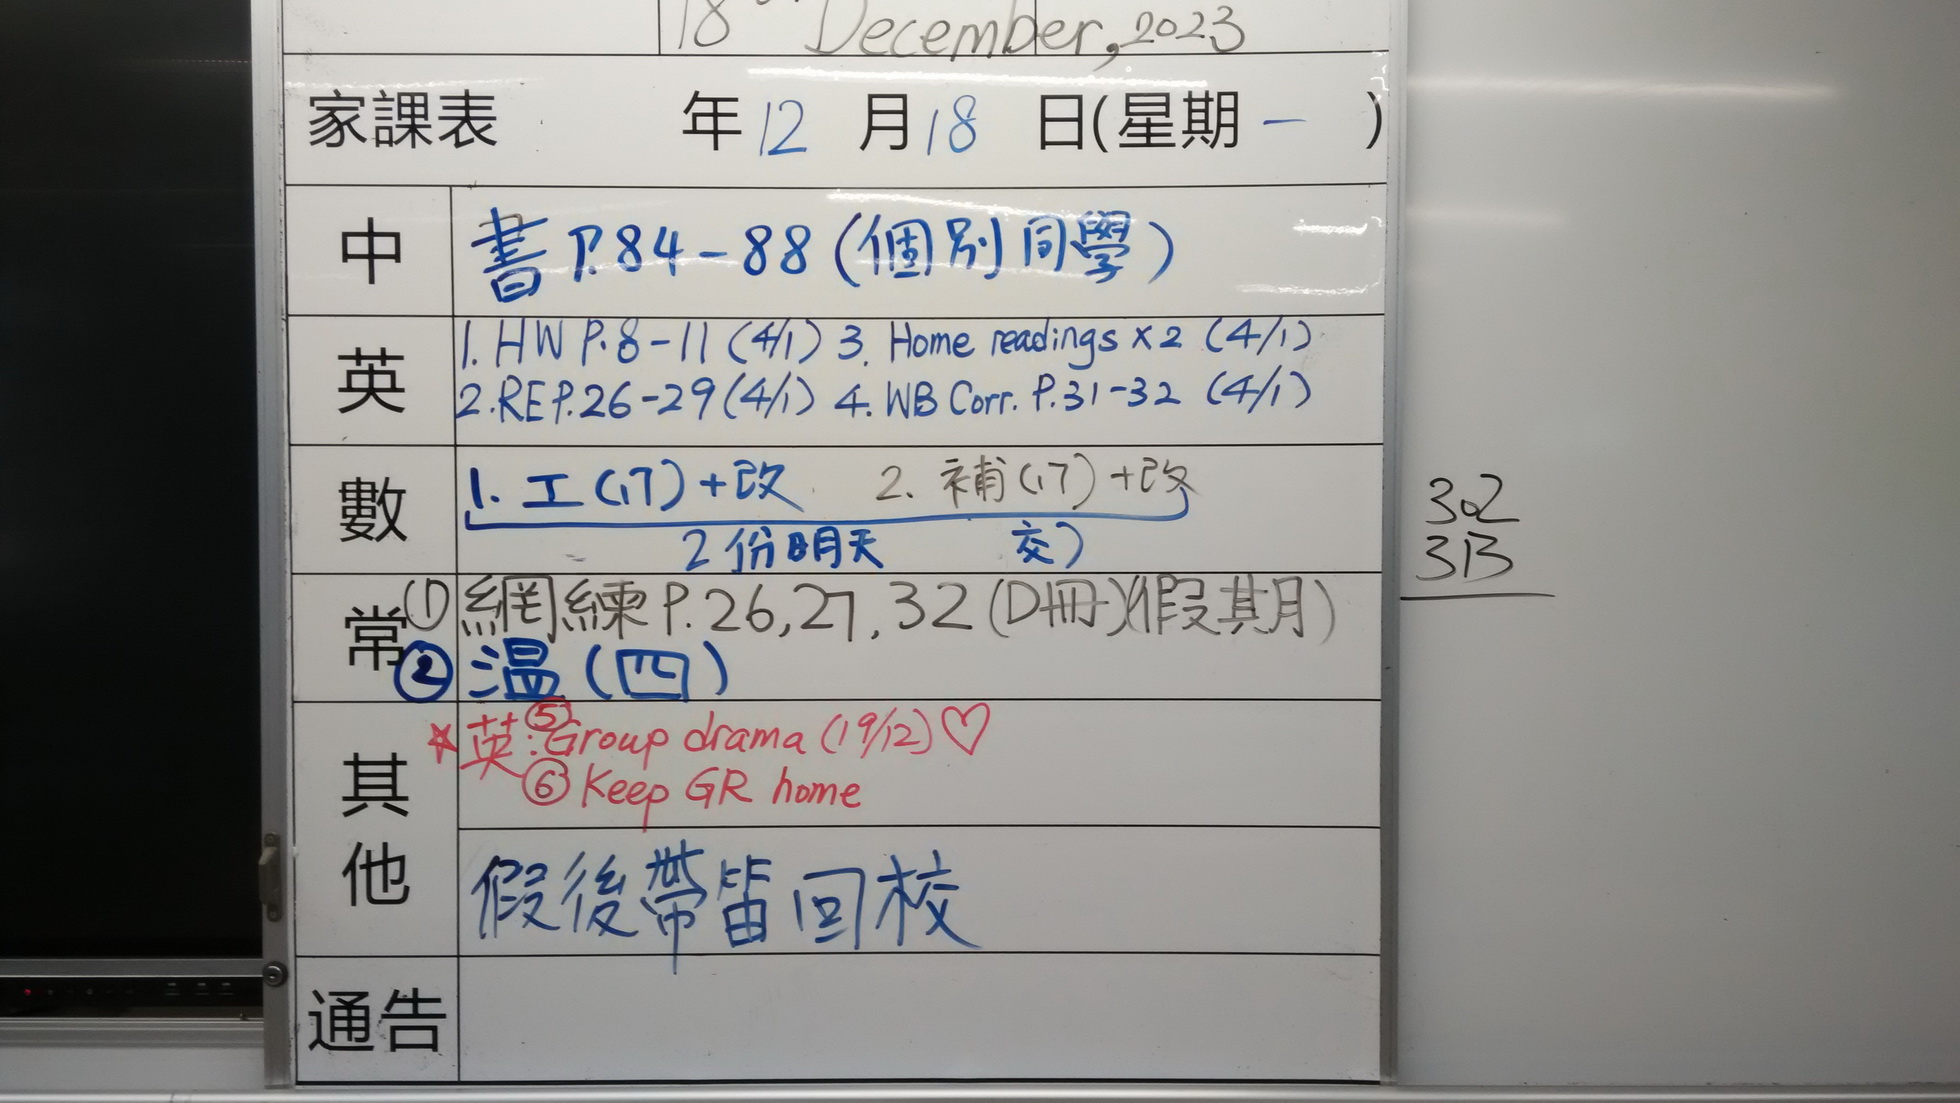 18th December, 2023
家課表 年12月18日(星期一)
中 書 P.84-88 (個別同學)
英 1. HW P.8-11 (4/1) 3. Home readings x2 (4/1)
2. RE P.26-29 (4/1) 4. WB Corr. P.31-32 (4/1)
數 1. 工(17)+改 2. 補(17)+改
2份明天 交)
常 (1) 網練 P.26,27,32 (D冊)(假期)
② 温(四)
其他 ☆英:⑤Group drama (19/12)♡
⑥ Keep GR home
假後帶笛回校
通告
302
313